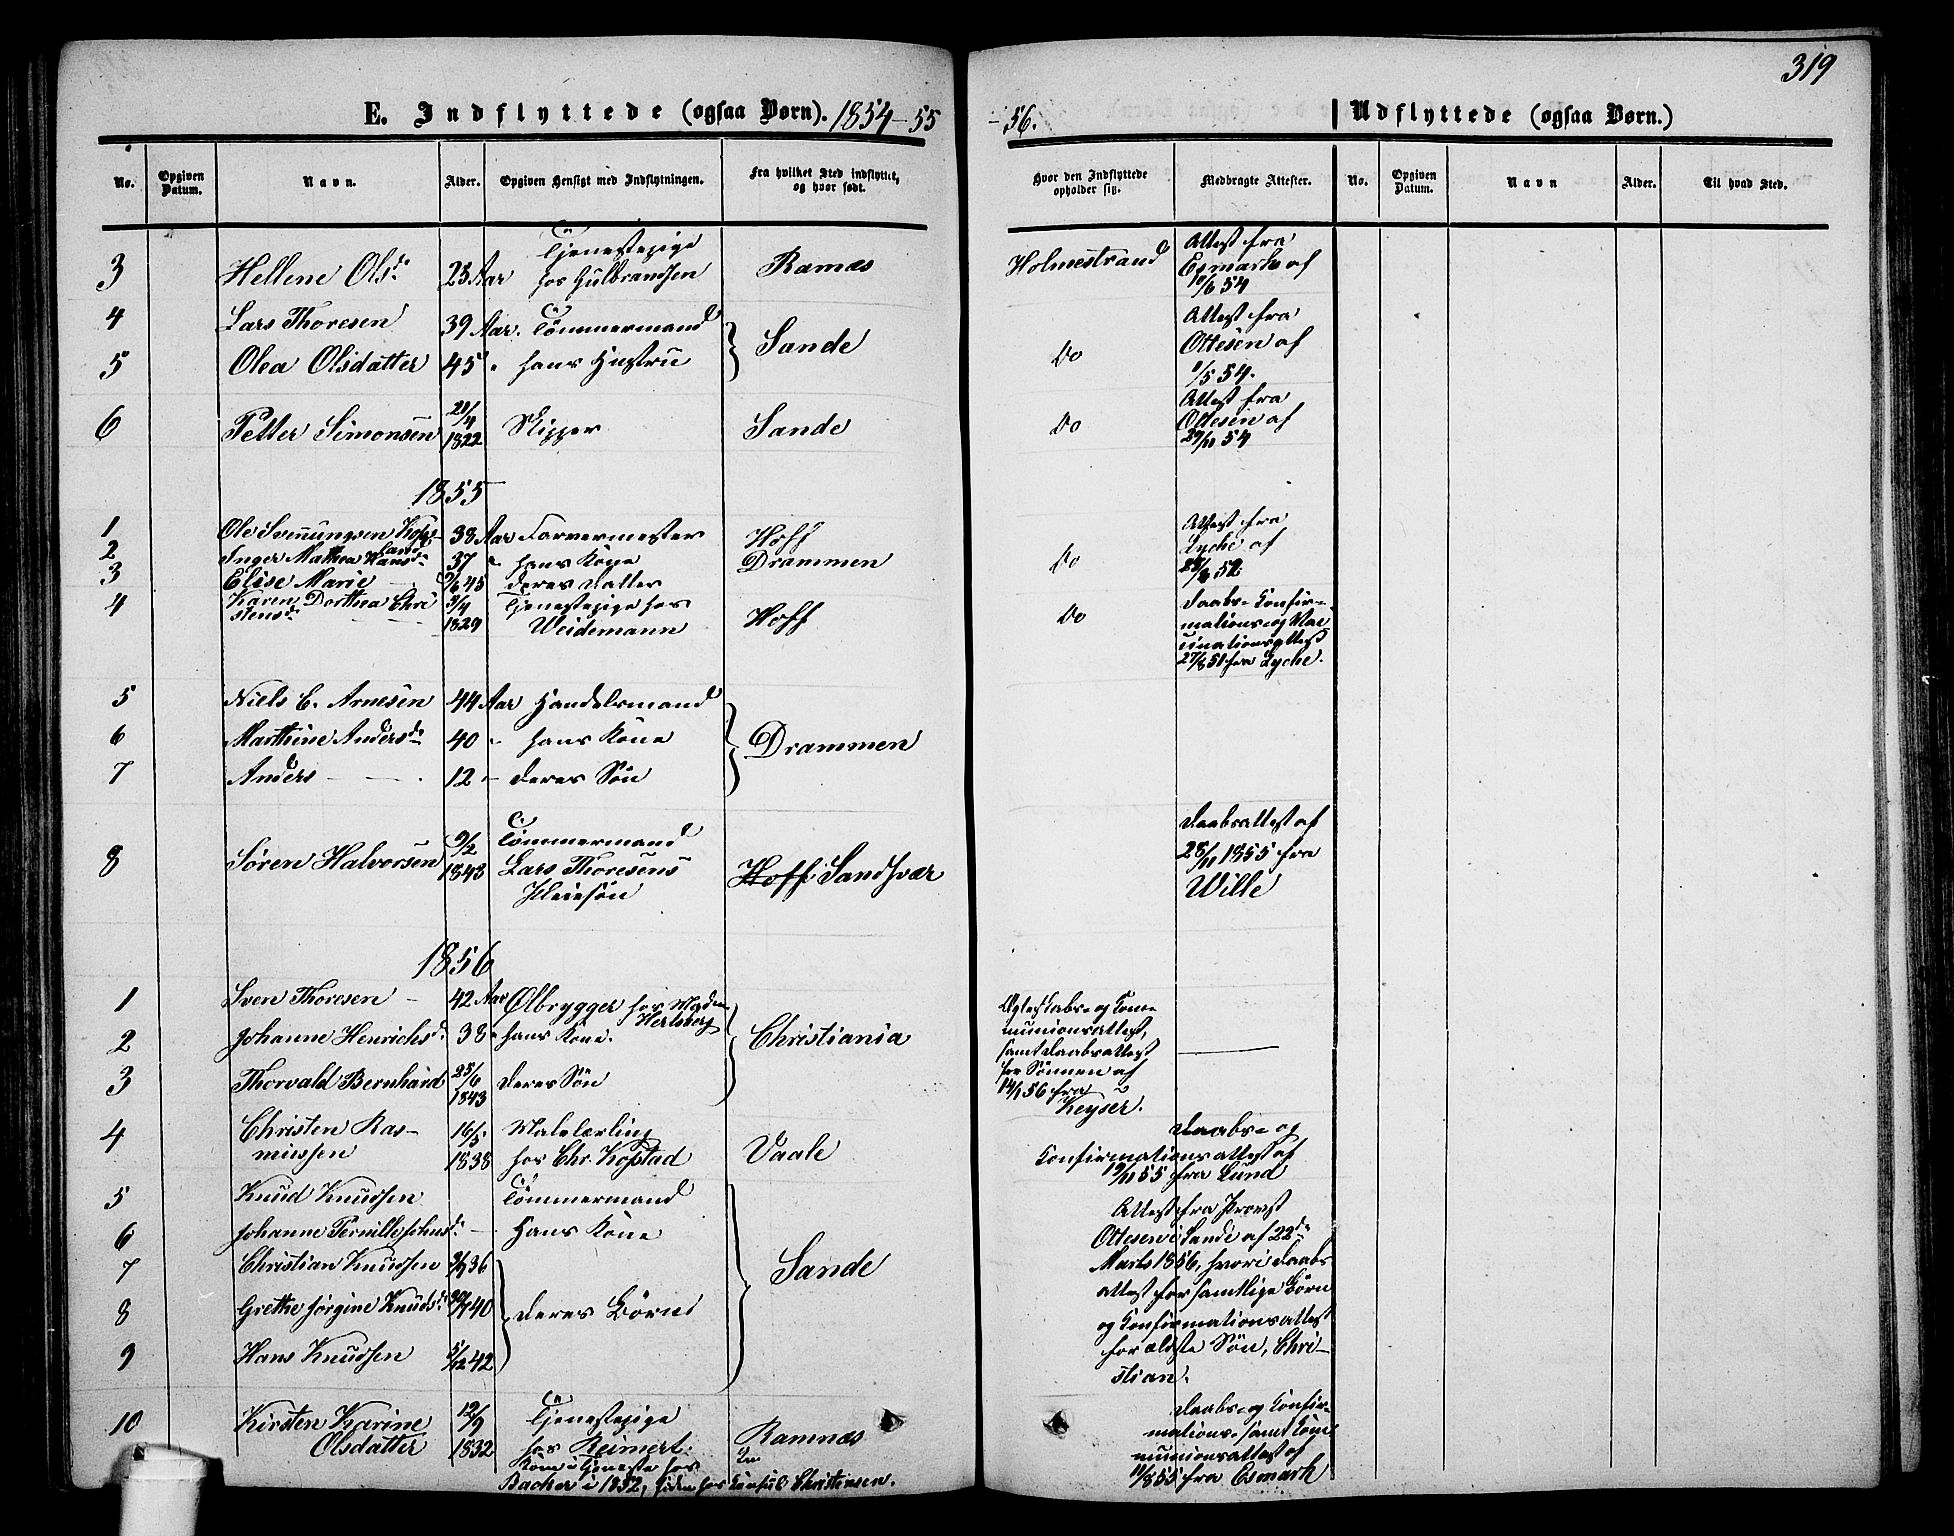 319
E. Indflyttede (ogsaa Børn). 1854-55
-56.
Udflyttede (ogsaa Børn.)
No. Opgiven Datum. Navn. Alder. Opgiven Hensigt med Indflytningen. Fra hvilket Sted indflyttet, og hvor født. Hvor den Indflyttede opholder sig. Medbragte Attester. No. Opgiven Datum. Navn Alder. Til hvad Sted.
3 Hellene Olsd. 23 Aar Tjenestepige hos Gulbrandsen Ramnæs Holmestrand Attest fra Esmark af 10/6 54
4 Lars Thoresen 39 Aar. Tömmermand
5 Olea Olsdatter 45 " hans Hustru Sande Do Attest fra Ottesen af 1/5 54.
6 Petter Simonsen 1822 Skipper Sande Do Attest fra Ottesen af 29/11 54
1855
1 Ole Svenungsen 38 Aar Farvermester Hoff
2 Inger Mathea Hansd. 37 " hans Kone Drammen Do Attest fra Lyche af 52
3 Elise Marie 45 deres Datter
4 Karen Dorthea Christensd. 3/4 1829 Tjenestepige hos Weidemann Hoff Do Daabs- Confirmations- og Vaccinationsattest 27/8 51 fra Lyche.
5 Niels C. Arnesen 44 Aar Handelsmand
6 Marthine Andersd. 40 - hans Kone Drammen
7 Anders - - 12 - deres Sön
8 Sören Halvorsen 9/2 1843 Tömmermand Lars Thoresens Pleiesön Hoff Sandsvær Daabsattest af 28/11 1855 fra Wille
1856
1 Sven Thoresen - 42 Aar Ølbrygger hos Madm Hertzberg
2 Johanne Henrichsd. 38 " hans Kone. Christiania
3 Thorvald Bernhard 25/6 1843 deres Sön
Ægteskabs- og Communionsattest, samt Daabsattest for Sönnen af 14/1 56 fra Keyser.
4 Christen Rasmussen 16/5 1838 Malelærling hos Chr. Kofstad Vaale Daabs- og Confirmationsattest af 19/11 55 fra Lund
5 Knud Knudsen Tömmermand
6 Johanne Pernille Johnsd. - Hans Kone
7 Christian Knudsen 36
8 Grethe Jörgine Knudsd. 40 deres Börn Sande
9 Hans Knudsen 5/12 42
Attest fra Provst Ottesen i Sande af 22de Marts 1856, hvori Daabsattest for samtlige Börn og Confirmationsattest for ældste Sön, Christian.
10 Kirsten Karine Olsdatter 12/9 1832 Tjenestepige hos Reinert. Ramnæs Daabs- og Confirmations- samt Communionsattest af 11/8 55 fra Esmark
Kom i Tjeneste hos
Backer i 1852, siden hos Consul Christensen.